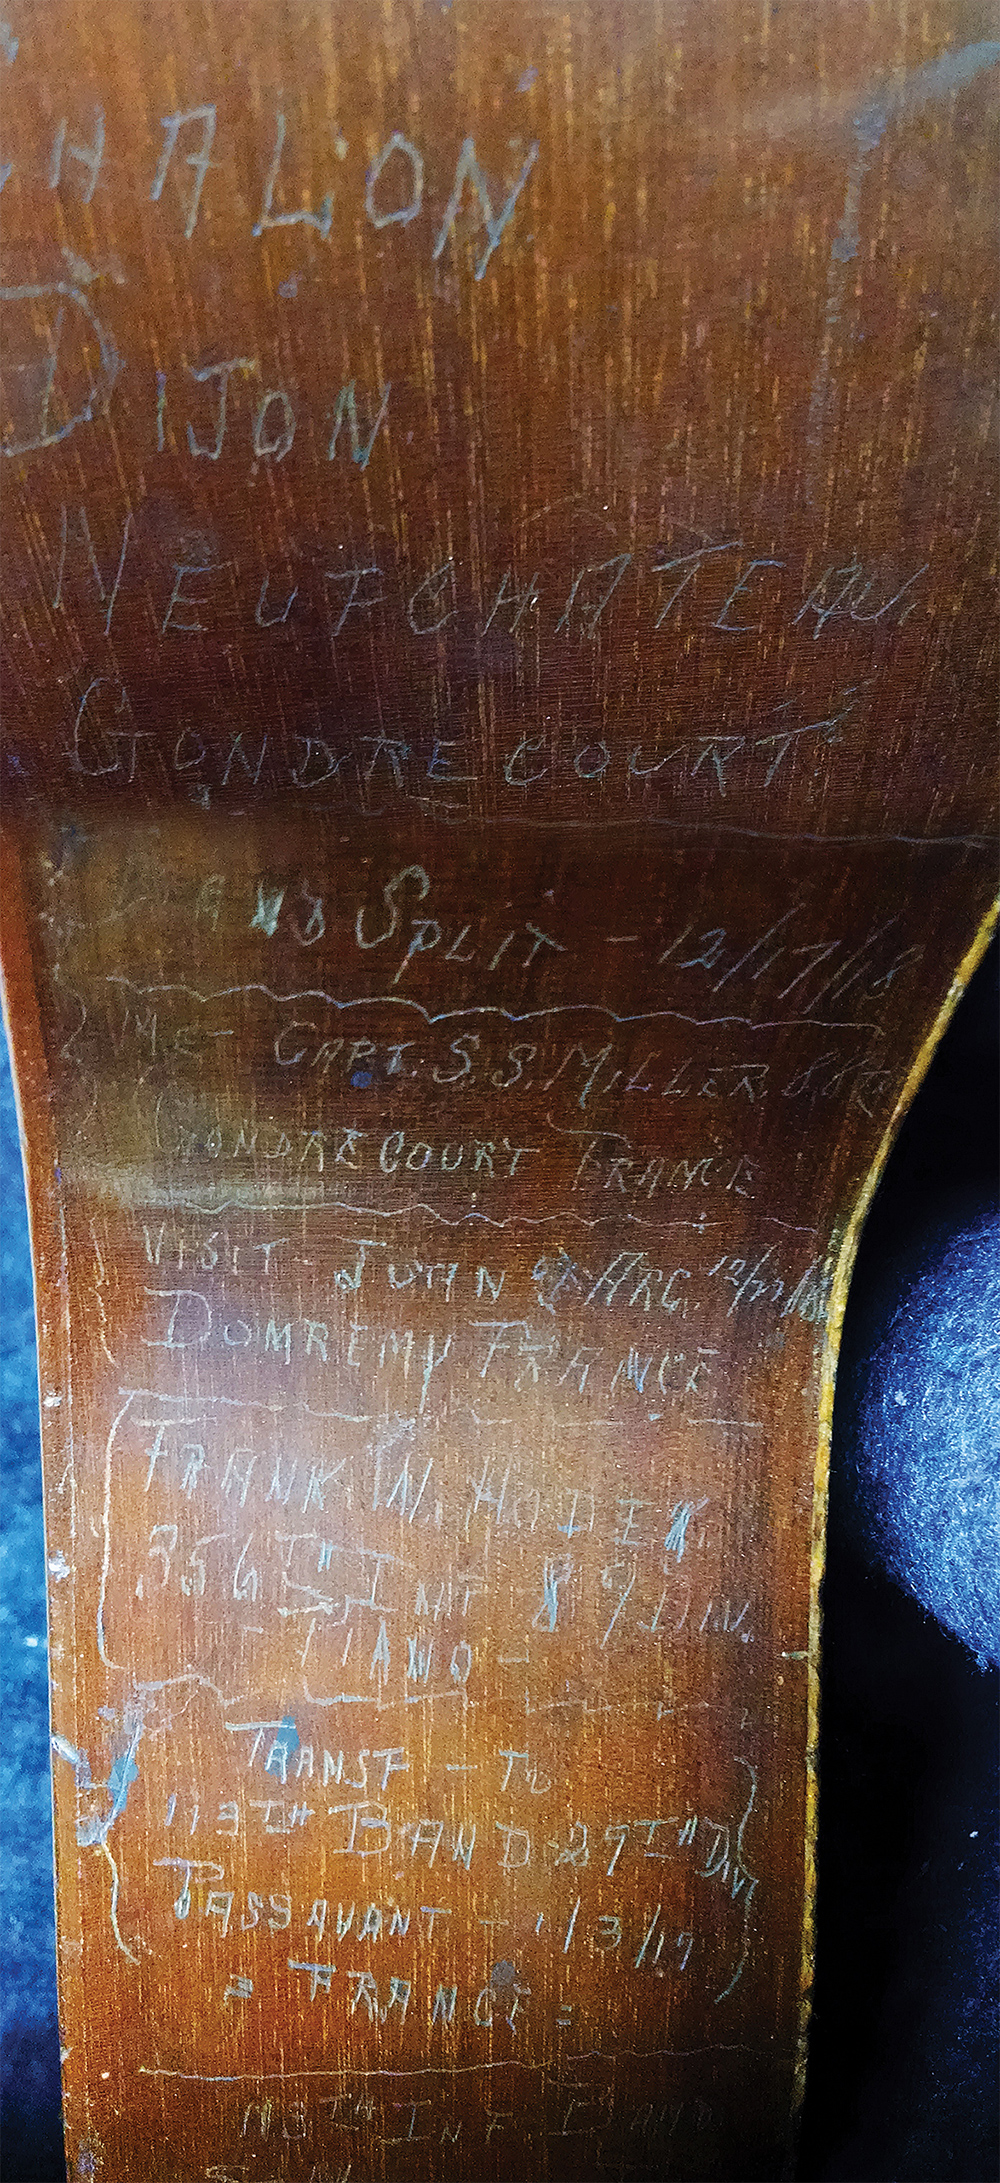 HALON
DIJON
NEUFCHATEAU
GONDRECOURT
SPLIT - 12/17/18
CAPT. S. S. MILLER
GONDRECOURT FRANCE
VISIT ARC.
DOMREMY FRANCE
FRANK
356TH INF 89 DIV.
TRANSF - TO
113TH BAND 29TH DIV
PASSAVANT - 1/3/19
= FRANCE =
INF BAND